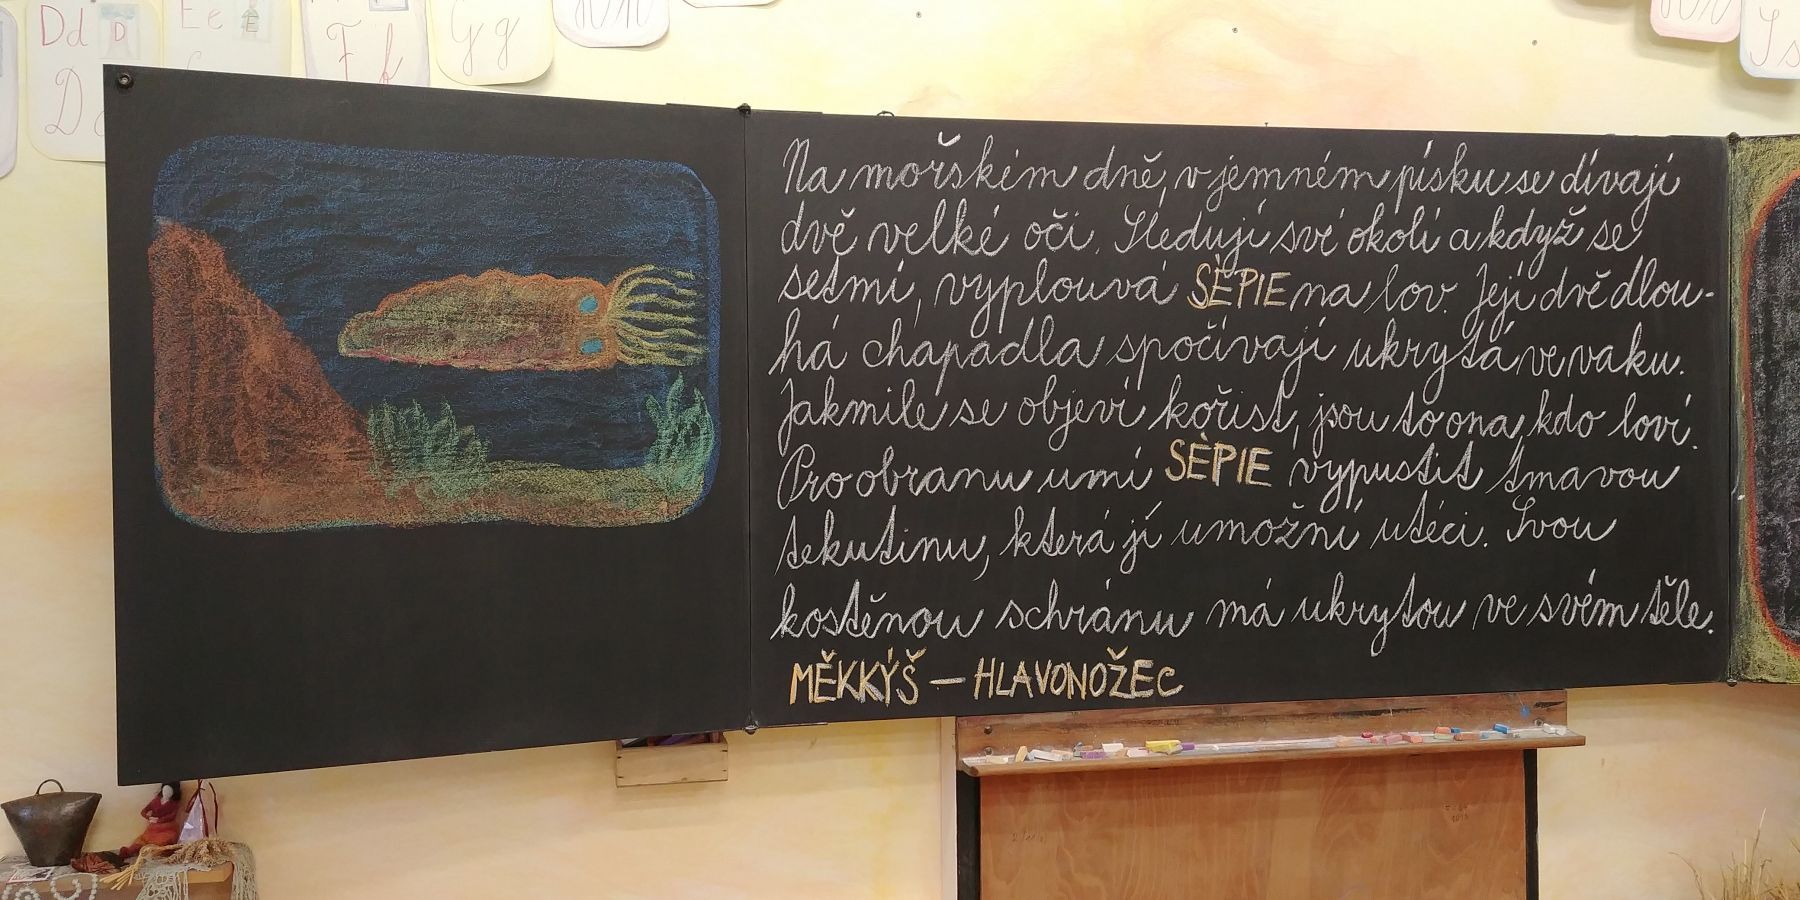 Dd
D
D
Ee
E
Ff
Gg
Na mořském dně, v jemném písku se dívají
dvě velké oči. Sledují své okolí a když se
setmí, vyplouvá SÉPIE na lov. Její dvě dlou-
há chapadla spočívají ukrytá ve vaku.
Jakmile se objeví kořist, jsou to ona, kdo loví.
Pro obranu umí SÉPIE vypustit tmavou
tekutinu, která jí umožní utéci. Svou
kostěnou schránu má ukrytou ve svém těle.
MĚKKÝŠ – HLAVONOŽEC